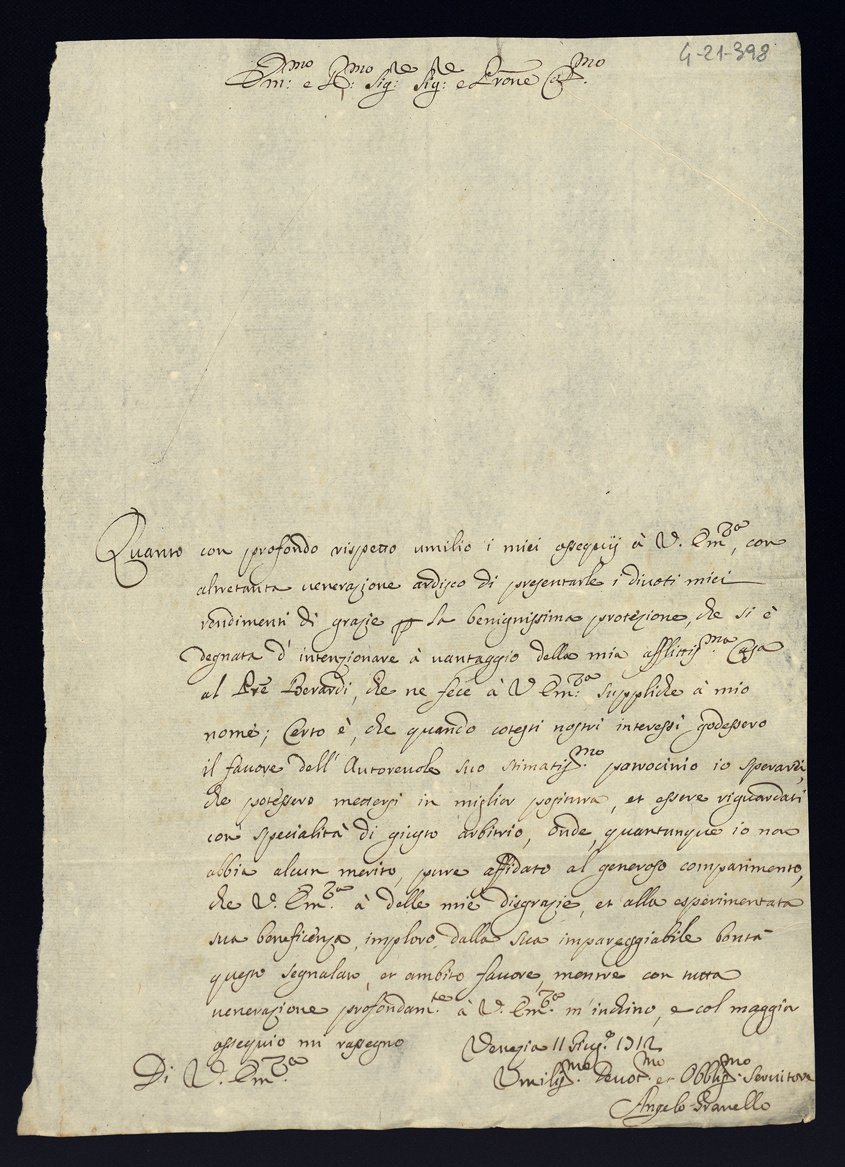 4-21-398
Em.mo e R.mo Sig.re Sig.re e Prone Col.mo
Quanto con profondo rispetto umilio i miei ossequij à V. Em.za, con
altretanta venerazione ardisco di presentarle i divoti miei
rendimenti di grazie per la benignissima protezione, che si è
degnata d'intenzionare à vantaggio della mia afflittis.ma Casa
al Pre Berardi, che ne fece à V. Em.za suppliche à mio
nome; Certo è, che quando cotesti nostri interessi godessero
il favore dell'Autorevole suo stimatis.mo patrocinio io sperarei,
che potessero mettersi in miglior positura, et essere riguardati
con specialità di giusto arbitrio, onde, quantunque io non
abbia alcun merito, pure affidato al generoso compatimento,
che V. Em.za à delle mie disgrazie, et alla esperimentata
sua beneficenza, imploro dalla sua impareggiabile bontà
questo segnalato, et ambito favore, mentre con tutta
venerazione profondam.te à V. Em.za m'inchino, e col maggior
ossequio mi rassegno
Venezia 11 Giug.o 1712
Di V. Em.za
Umilis.mo Devot.mo et Obblig.mo Servitore
Angelo